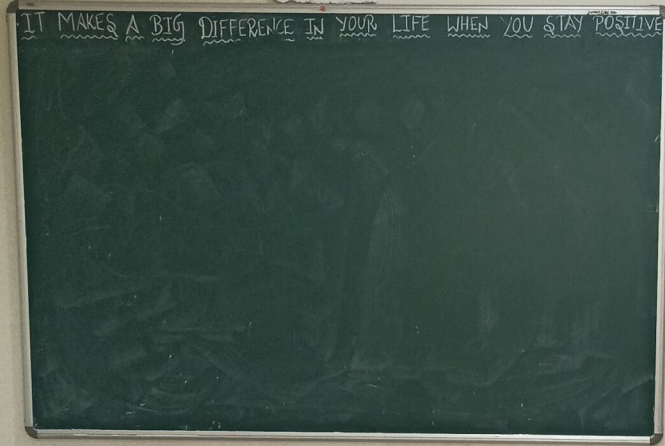 IT MAKES A BIG DIFFERENCE IN YOUR LIFE WHEN YOU STAY POSITIVE